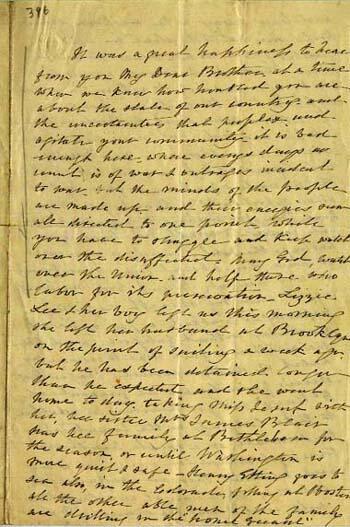 396
It was a great happiness to hear
from you My Dear Brother, at a time
when we know how troubled you are
about the state of our country and
the uncertainties that perplex and
agitate your community it is bad
enough here where every days account
is of war & outrages incident
to war but the minds of the people
are made up and their energies seem
all directed to one point while
you have to struggle and keep watch
over the disaffected. May God watch
over the Union and help those who
labor for its preservation - Lizzie
Lee & her boy left us this morning
she left her husband at Brooklyn
on the point of sailing a week ago
but he has been detained longer
than he expected and she went
home to day, taking Miss with
her, her sister Mrs James Blair
has her family at Bethlehem for
the season, or until Washington is
more quiet & safe - Henry Etting goes to
sea also in the Colorado fitting at Boston
all the other able men of the family
are drilling in the "home guard".